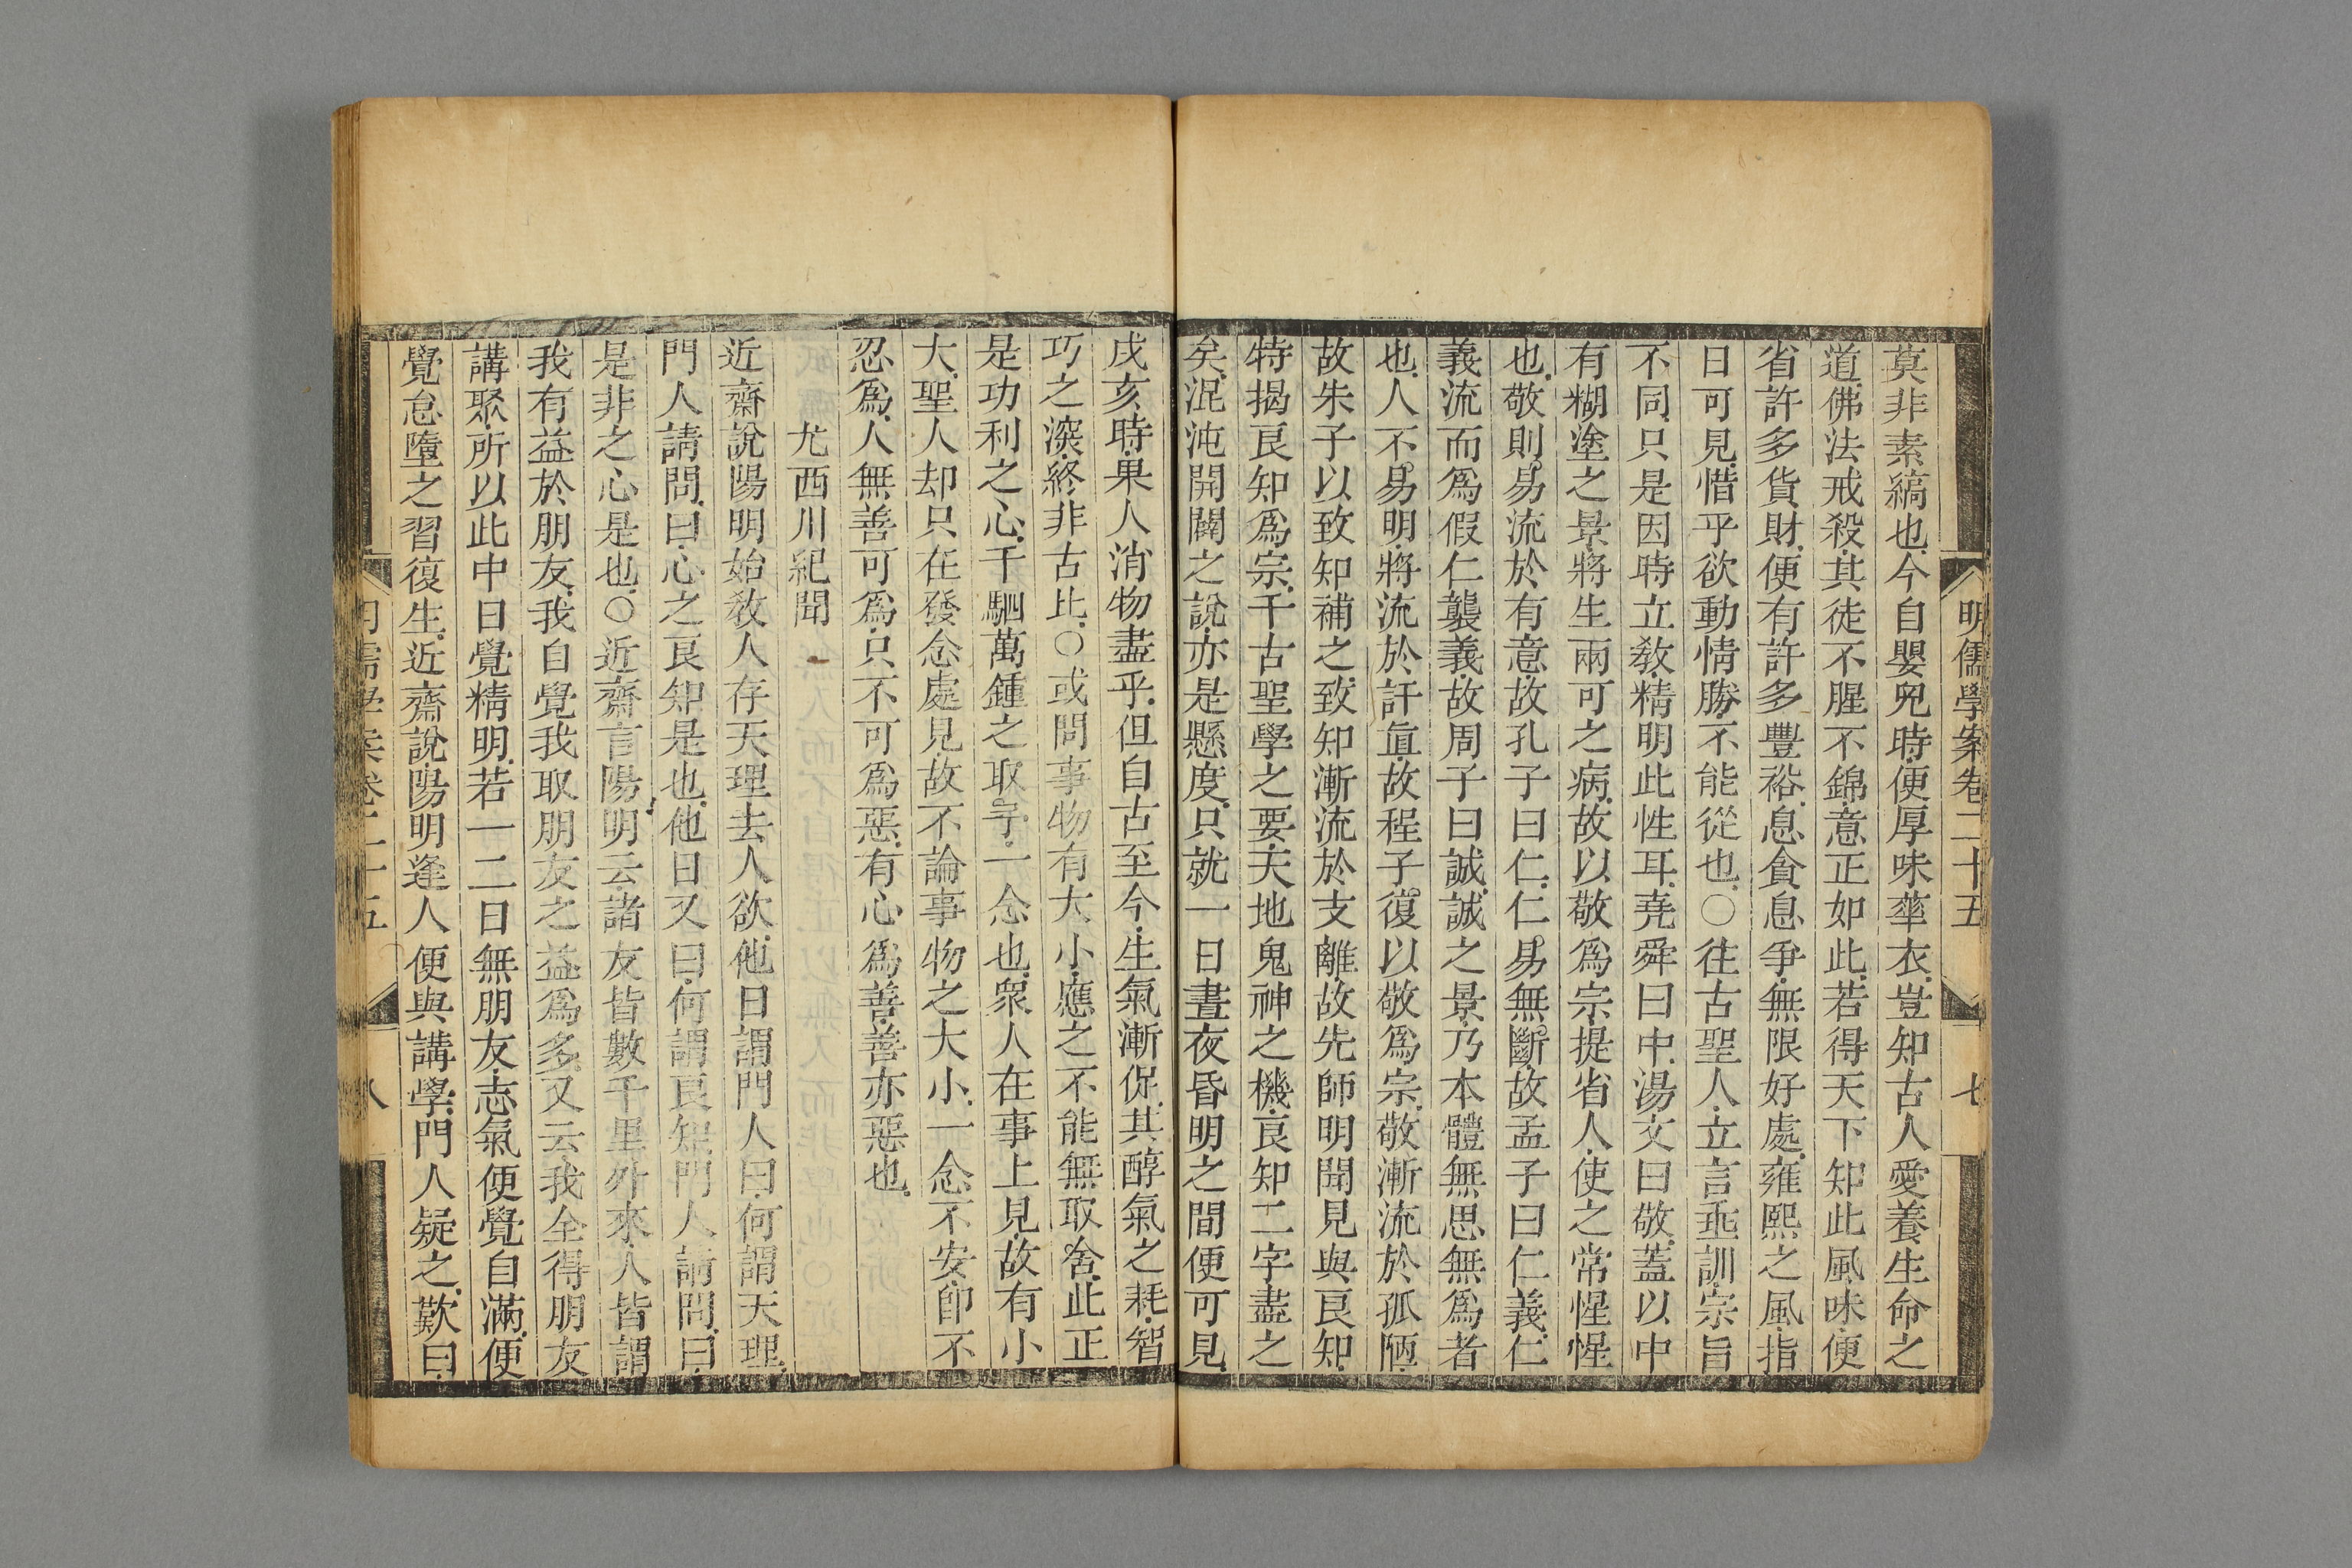 明儒學案卷二十五
七
莫非素縞也今自嬰兒時便厚味華衣豈知古人愛養生命之
道佛法戒殺其徒不腥不錦意正如此若得天下知此風味便
省許多貨財便有許多豐裕息貪息爭無限好處雍熙之風指
日可見惜乎欲動情勝不能從也○往古聖人立言垂訓宗旨
不同只是因時立教精明此性耳堯舜曰中湯文曰敬蓋以中
有糊塗之景將生兩可之病故以敬爲宗提省人使之常惺惺
也敬則易流於有意故孔子曰仁仁易無斷故孟子曰仁義仁
義流而爲假仁襲義故周子曰誠誠之景乃本體無思無爲者
也人不易明將流於訐直故程子復以敬爲宗敬漸流於孤陋
故朱子以致知補之致知漸流於支離故先師明聞見與良知
特揭良知爲宗千古聖學之要天地鬼神之機良知二字盡之
矣混沌開闢之說亦是懸度只就一日晝夜昏明之間便可見
戌亥時果人消物盡乎但自古至今生氣漸促其醇氣之耗智
巧之深終非古比○或問事物有大小應之不能無取舍此正
是功利之心千駟萬鍾之取予一念也衆人在事上見故有小
大聖人却只在發念處見故不論事物之大小一念不安卽不
忍爲人無善可爲只不可爲惡有心爲善善亦惡也
尤西川紀聞
近齋說陽明始教人存天理去人欲他日謂門人曰何謂天理
門人請問曰心之良知是也他日又曰何謂良知門人請問曰
是非之心是也○近齋言陽明云諸友皆數千里外來人皆謂
我有益於朋友我自覺我取朋友之益爲多又云我全得朋友
講聚所以此中日覺精明若一二日無朋友志氣便覺自滿便
覺怠墮之習復生近齋說陽明逢人便與講學門人疑之歎曰
明儒學案卷二十五
八